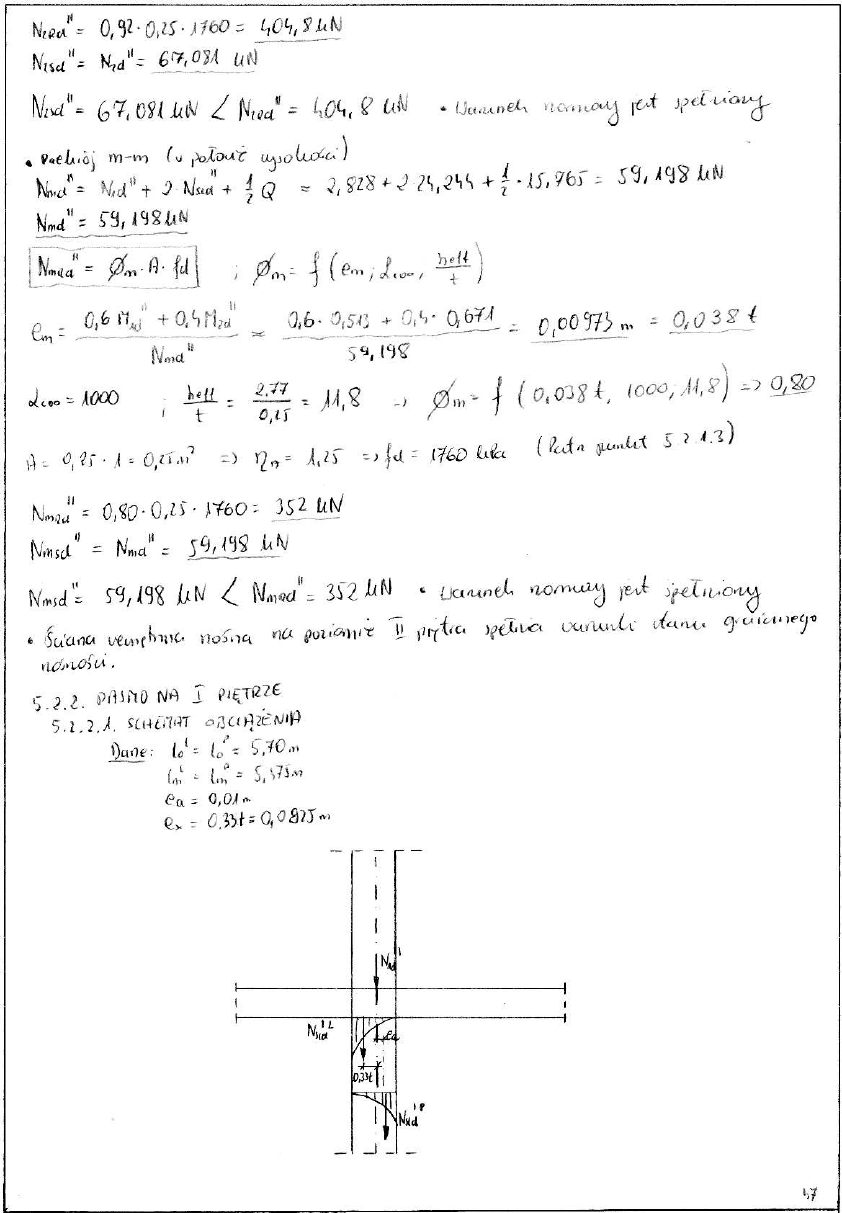 N2Rd" = 0,92 · 0,25 · 1760 = 404,8 kN
N2sd" = N2d" = 67,081 kN
N2sd" = 67,081 kN < N2Rd" = 404,8 kN • Warunek normowy jest spełniony
• Przekrój m-m (w połowie wysokości)
Nmd" = N1d" + 2 · Nsld" + 1/2 Q = 2,828 + 2 · 24,244 + 1/2 · 15,765 = 59,198 kN
Nmd" = 59,198 kN
NmRd" = Øm · A · fd ; Øm = f (em; α c∞, heff/t)
em = (0,6 M1d" + 0,4 M2d")/Nmd" = (0,6 · 0,513 + 0,4 · 0,671)/59,198 = 0,00973 m = 0,038 t
α c∞ = 1000 ; heff/t = 2,77/0,25 = 11,8 → Øm = f (0,038 t, 1000, 11,8) => 0,80
A = 0,25 · 1 = 0,25 m² => ηA = 1,25 => fd = 1760 kPa (Patrz punkt 5.2.1.3)
NmRd" = 0,80 · 0,25 · 1760 = 352 kN
Nmsd" = Nmd" = 59,198 kN
Nmsd" = 59,198 kN < NmRd" = 352 kN • Warunek normowy jest spełniony
• Ściana wewnętrzna nośna na poziomie II piętra spełnia warunki stanu granicznego
nośności.
5.2.2. PASMO NA I PIĘTRZE
5.2.2.1. SCHEMAT OBCIĄŻENIA
Dane: lo^L = lo^P = 5,70 m
lm^L = lm^P = 5,475 m
ea = 0,01 m
ex = 0,33t = 0,0825 m
N1d'
Nsld'L
ea
0,33t
Nsld'P
47